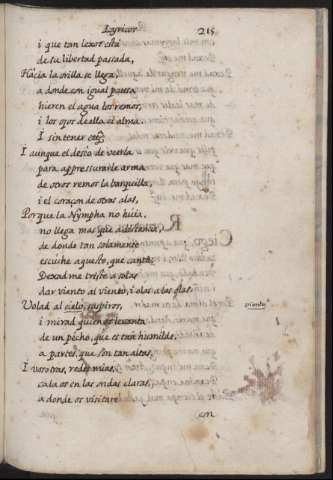 Lyricos 215
i que tan lexos está
de su libertad passada,
Hacia la orilla se llega,
a donde con igual pausa
hieren el agua los remos,
i los ojos de ella el alma.
I sin tener etc.
I aunque el desseo de verla
para appressurarle arma
de otros remos la barquilla,
i el coraçon de otras alas,
Porque la Nympha no huia,
no llega mas que a distancia,
de donde tan solamente
escuche aquesto, que canta:
Dexadme triste a solas
dar viento al viento, i olas a las olas.
Volad al cielo, suspiros, viento
i mirad quien os levanta
de un pecho, que es tan humilde,
a partes, que son tan altas,
I vosotras, redes mias,
calaos en las ondas claras,
a donde os visitare
con